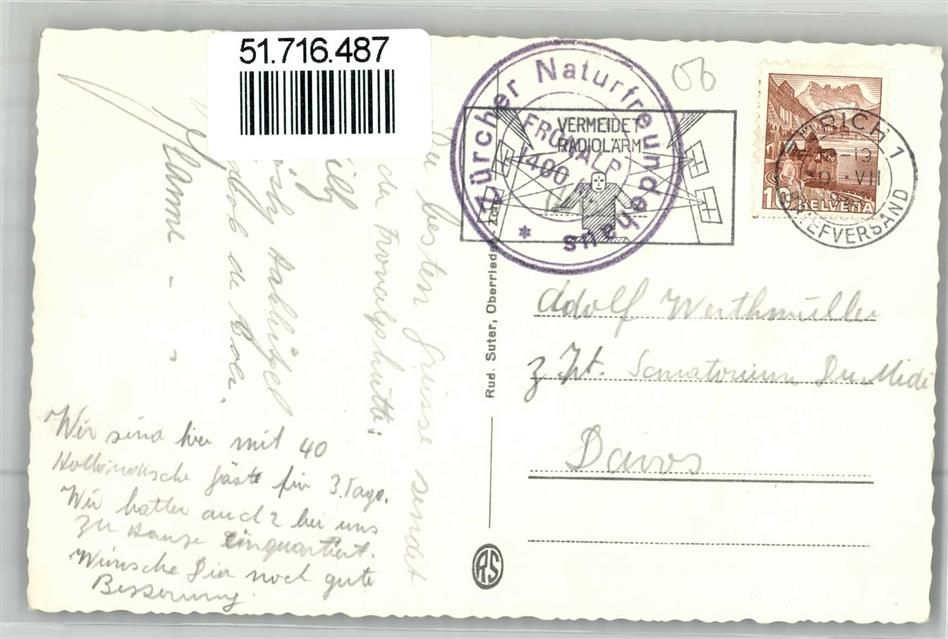 51.716.487
Zürcher Naturfreundehaus *
FRONALP
1400
VERMEIDET
RADIOLÄRM
ZÜRICH 1
VII
BRIEFVERSAND
10 HELVETIA
besten Grüsse sendet
der Fronalphütte:
Willy
de Boer.
Hanni
Wir sind hier mit 40
Holländische Gäste für 3 Tage.
Wir hatten auch 2 bei uns
zu Hause einquartiert.
Wünsche Dir noch gute
Besserung.
Rud. Suter, Oberrieden
RS
Adolf Werthmüller
z. Zt. Sanatorium Du Midi
Davos
06